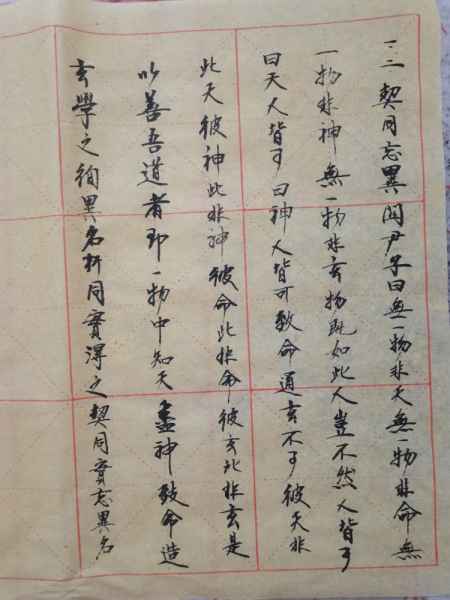 一·二 契同忘異 関尹子曰無一物非天無一物非命無
一物非神無一物非玄物既如此人豈不然人皆可
曰天人皆可曰神人皆可致命通玄不可彼天非
此天彼神此非神彼命此非命彼玄此非玄是
以善吾道者即一物中知天盡神致命造
玄學之徇異名析同實得之契同實忘異名